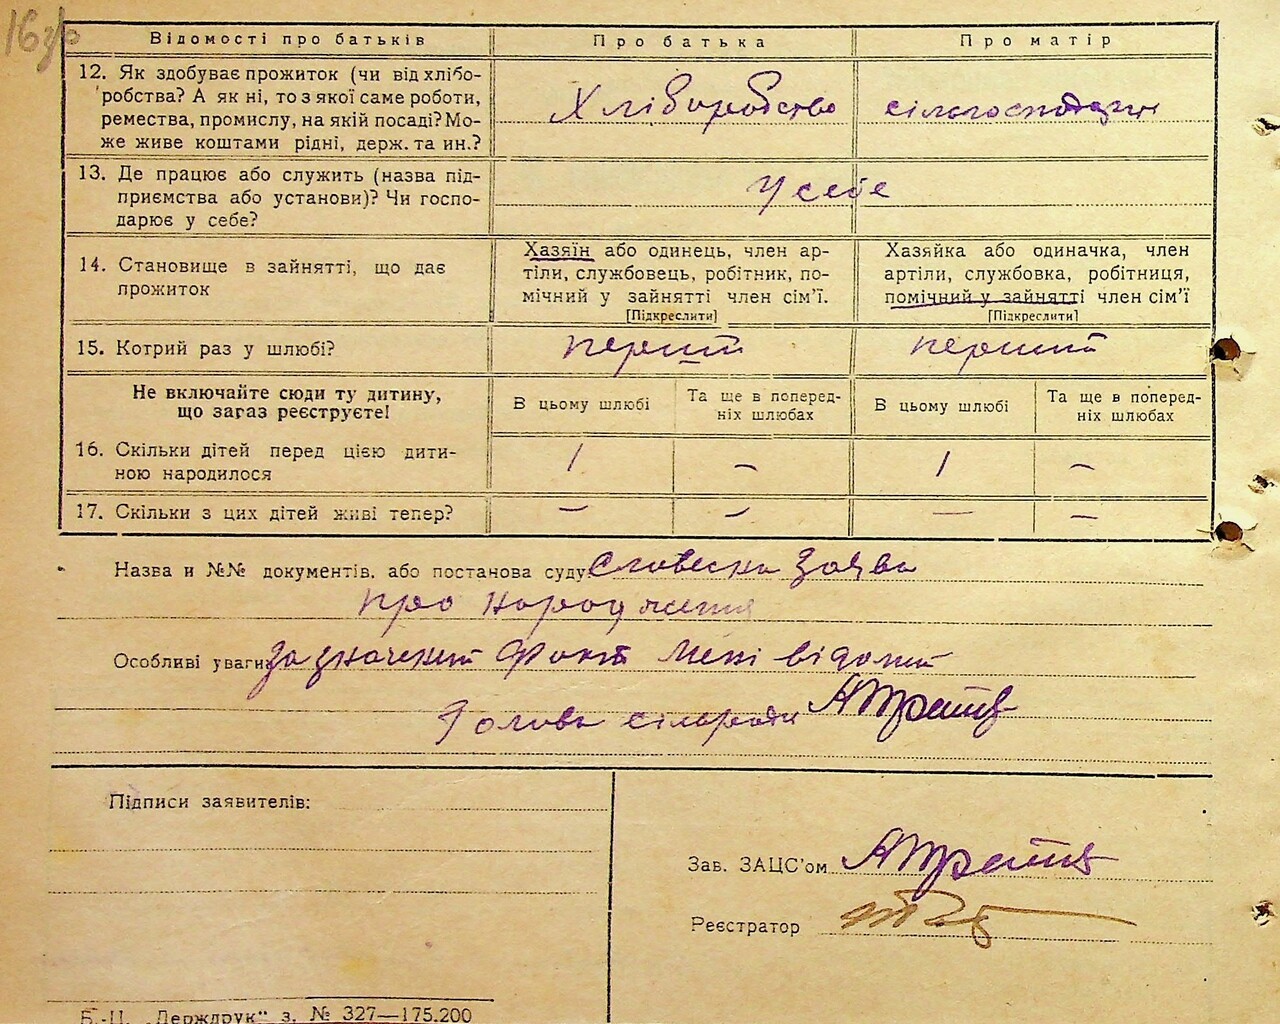 16 зв
Відомості про батьків Про батька Про матір
12. Як здобуває прожиток (чи від хлібо-
робства? А як ні, то з якої саме роботи,
ремества, промислу, на якій посаді? Мо-
же живе коштами рідні, держ. та ин.?
Хліборобство
13. Де працює або служить (назва під-
приємства або установи)? Чи госпо-
дарює у себе?
У себе
14. Становище в зайнятті, що дає
прожиток
Хазяїн або одинець, член ар-
тіли, службовець, робітник, по-
мічний у зайнятті член сім’ї.
[Підкреслити]
Хазяйка або одиначка, член
артіли, службовка, робітниця,
помічний у зайнятті член сім’ї
[Підкреслити]
15. Котрий раз у шлюбі? перший перший
Не включайте сюди ту дитину,
що загаз реєструєте!
В цьому шлюбі Та ще в поперед-
ніх шлюбах В цьому шлюбі Та ще в поперед-
ніх шлюбах
16. Скільки дітей перед цією дити-
ною народилося
1 — 1 —
17. Скільки з цих дітей живі тепер? — — — —
Назва и №№ документів. або постанова суду Словесна заява
про народження
Особливі уваги Зазначений факт мені відомий
Голова сільради
Підписи заявителів:
Зав. ЗАЦС’ом
Реєстратор
Б.-Ц. „Держдрук“ з. № 327—175.200